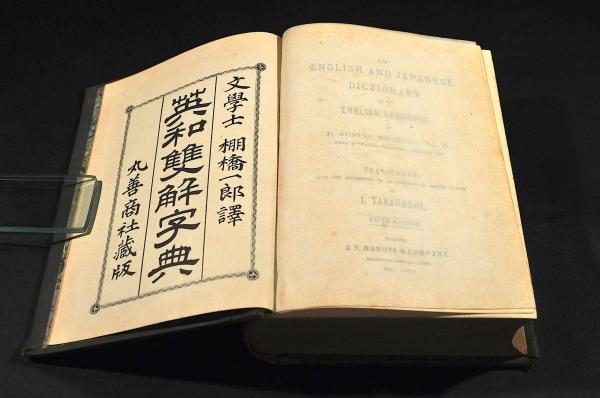 文學士 棚橋一郎譯
英和雙解字典
丸善商社藏版
AN
ENGLISH AND JAPANESE
DICTIONARY
ENGLISH LANGUAGE,
BY
P. AUSTIN NUTTALL, LL. D.,
TRANSLATED
BY
I. TANAHASHI.
FIFTH EDITION.
Z. P. MARUYA & COMPANY.